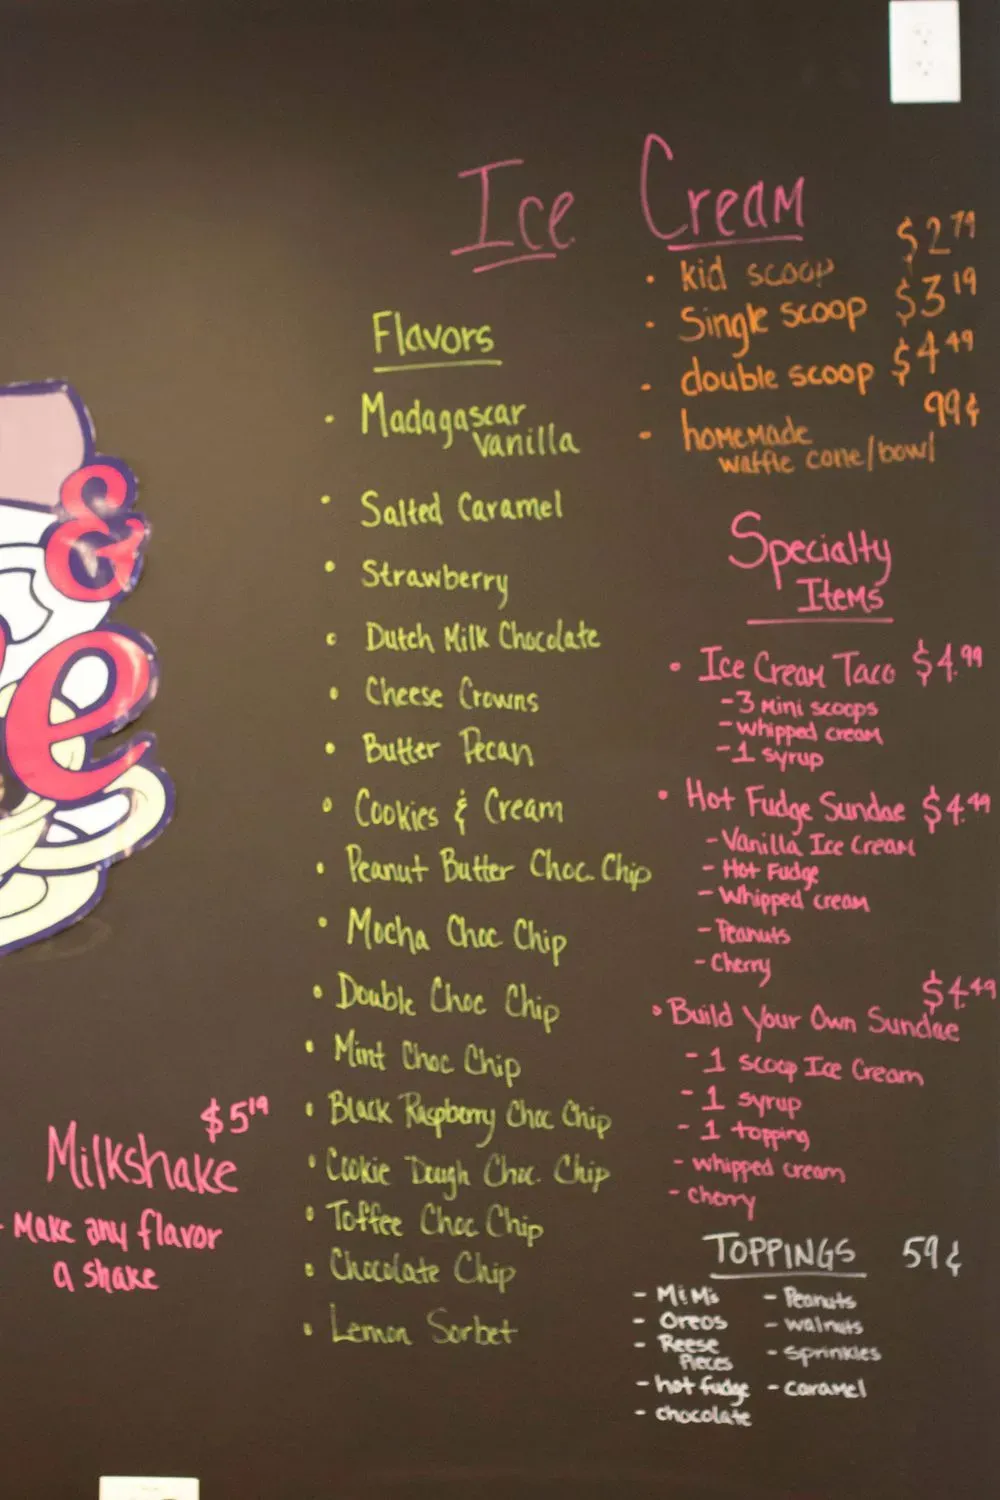 Ice Cream
• kid scoop $2.79
• Single scoop $3.19
• double scoop $4.49
• homemade 99¢
waffle cone/bowl
Flavors
• Madagascar
vanilla
• Salted Caramel
• Strawberry
• Dutch Milk Chocolate
• Cheese Crowns
• Butter Pecan
• Cookies & Cream
• Peanut Butter Choc. Chip
• Mocha Choc Chip
• Double Choc Chip
• Mint Choc Chip
• Black Raspberry Choc Chip
• Cookie Dough Choc. Chip
• Toffee Choc Chip
• Chocolate Chip
• Lemon Sorbet
Specialty
Items
• Ice Cream Taco $4.99
- 3 mini scoops
- whipped cream
- 1 syrup
• Hot Fudge Sundae $4.49
- Vanilla Ice Cream
- Hot Fudge
- Whipped cream
- Peanuts
- Cherry
$4.49
• Build Your Own Sundae
- 1 scoop Ice Cream
- 1 syrup
- 1 topping
- whipped cream
- cherry
TOPPINGS 59¢
- M&M's
- Oreos
- Reese
Pieces
- hot fudge
- chocolate
- Peanuts
- walnuts
- sprinkles
- caramel
&
e
$5.19
Milkshake
- Make any flavor
a shake